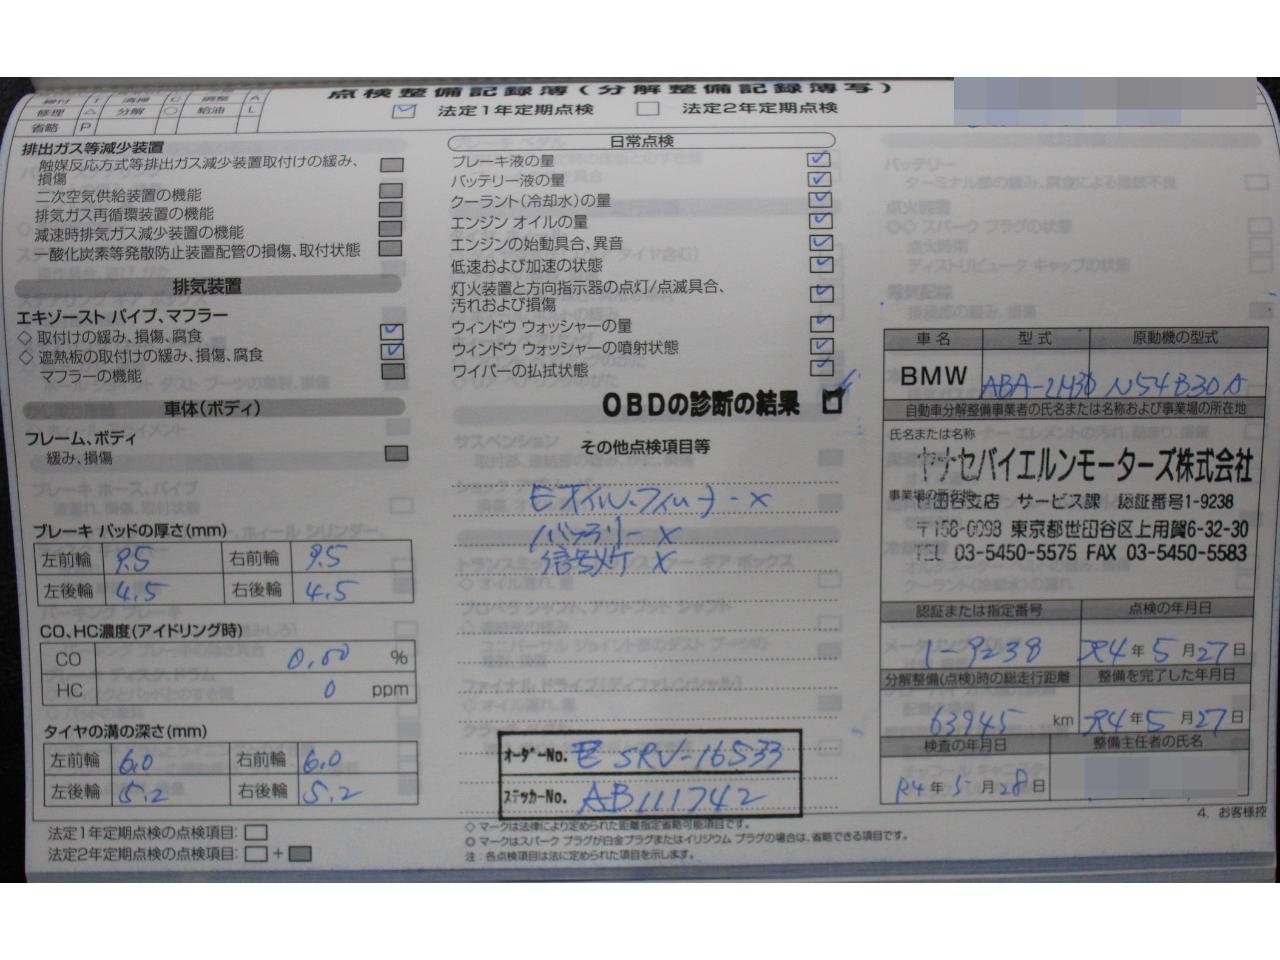 点検整備記録簿(分解整備記録簿写)
締付 T 清掃 C 調整 A
修理 △ 分解 ○ 給油 L
省略 P
法定1年定期点検 法定2年定期点検
排出ガス等減少装置
触媒反応方式等排出ガス減少装置取付けの緩み、
損傷
二次空気供給装置の機能
排気ガス再循環装置の機能
減速時排気ガス減少装置の機能
一酸化炭素等発散防止装置配管の損傷、取付状態
排気装置
エキゾースト パイプ、マフラー
◇ 取付けの緩み、損傷、腐食
◇ 遮熱板の取付けの緩み、損傷、腐食
マフラーの機能
車体(ボディ)
フレーム、ボディ
緩み、損傷
ブレーキ パッドの厚さ(mm)
左前輪 9.5 右前輪 9.5
左後輪 4.5 右後輪 4.5
CO、HC濃度(アイドリング時)
CO 0.00 %
HC 0 ppm
タイヤの溝の深さ(mm)
左前輪 6.0 右前輪 6.0
左後輪 5.2 右後輪 5.2
法定1年定期点検の点検項目:
法定2年定期点検の点検項目: +
日常点検
ブレーキ液の量
バッテリー液の量
クーラント(冷却水)の量
エンジン オイルの量
エンジンの始動具合、異音
低速および加速の状態
灯火装置と方向指示器の点灯/点滅具合、
汚れおよび損傷
ウィンドウ ウォッシャーの量
ウィンドウ ウォッシャーの噴射状態
ワイパーの払拭状態
OBDの診断の結果
その他点検項目等
Eオイル、フィルター ×
バッテリー ×
信号灯 ×
オーダーNo. SRV-16533
ステッカーNo. AB111742
◇ マークは法律により定められた距離指定省略可能項目です。
◎ マークはスパーク プラグが白金プラグまたはイリジウム プラグの場合は、省略できる項目です。
注:各点検項目は法に定められた項目を示します。
車名 型式 原動機の型式
BMW ABA-LM30 N54B30A
自動車分解整備事業者の氏名または名称および事業場の所在地
氏名または名称
ヤナセバイエルンモーターズ株式会社
事業場の所在地
世田谷支店 サービス課 認証番号1-9238
〒158-0098 東京都世田谷区上用賀6-32-30
TEL 03-5450-5575 FAX 03-5450-5583
認証または指定番号 点検の年月日
1-9238 R4年5月27日
分解整備(点検)時の総走行距離 整備を完了した年月日
63945 km R4年5月27日
検査の年月日 整備主任者の氏名
R4年5月28日
4. お客様控